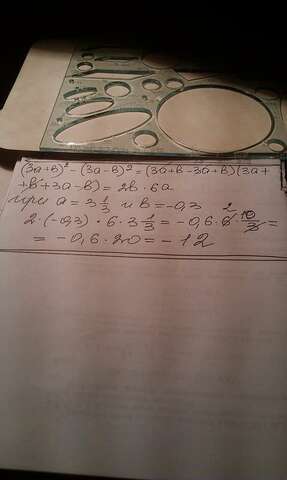 (3a+b)² - (3a-b)² = (3a+b-3a+b)(3a+
+b+3a-b) = 2b·6a
при a = 3 1/3 и b = -0,3
2·(-0,3)·6·3 1/3 = -0,6·6 2·10/3 =
= -0,6·20 = -12